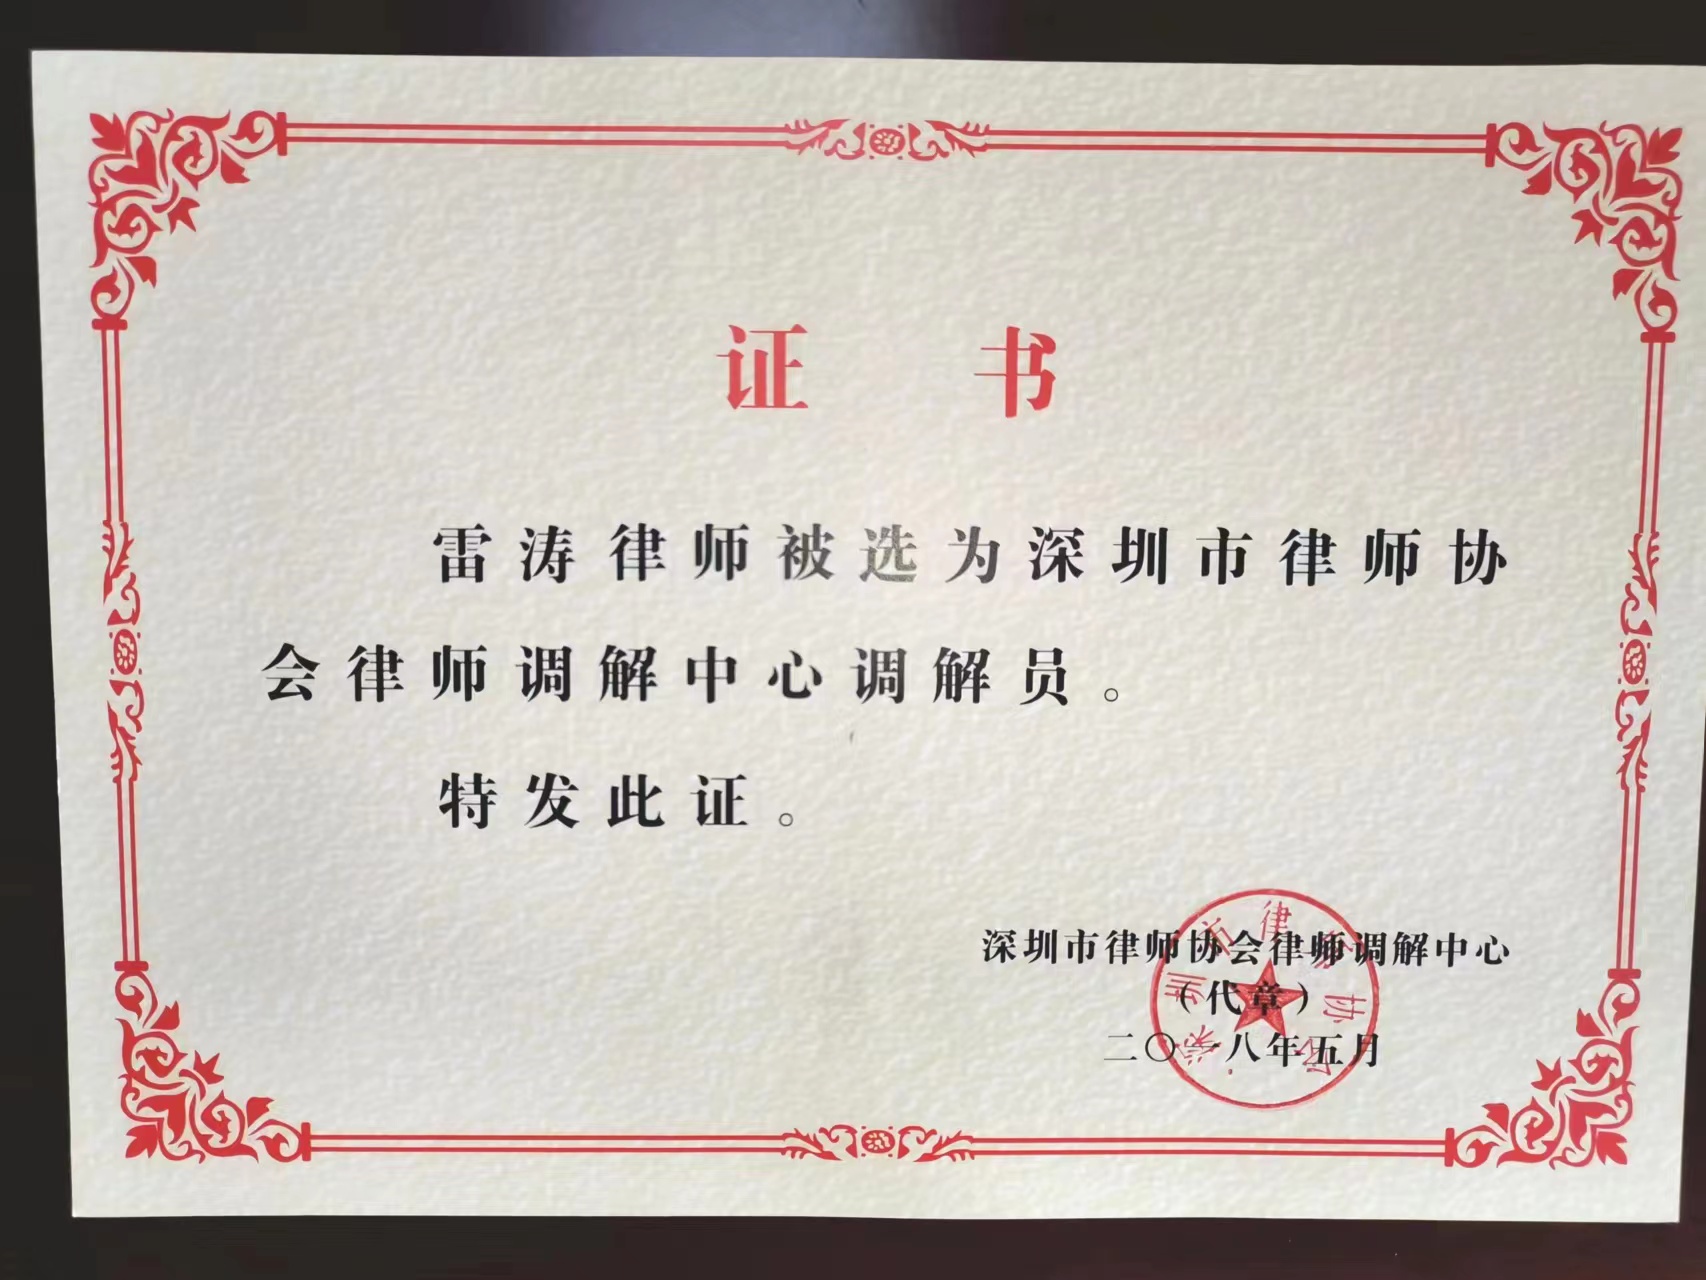 证 书
雷涛律师被选为深圳市律师协
会律师调解中心调解员。
特发此证。
深圳市律师协会律师调解中心
（代章）
二〇一八年五月
深圳市律师协会